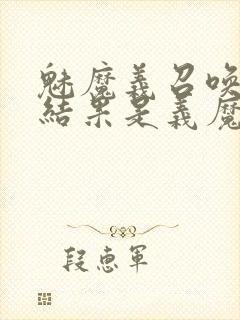 魅魔義召唤
結果是義魔
段惠軍